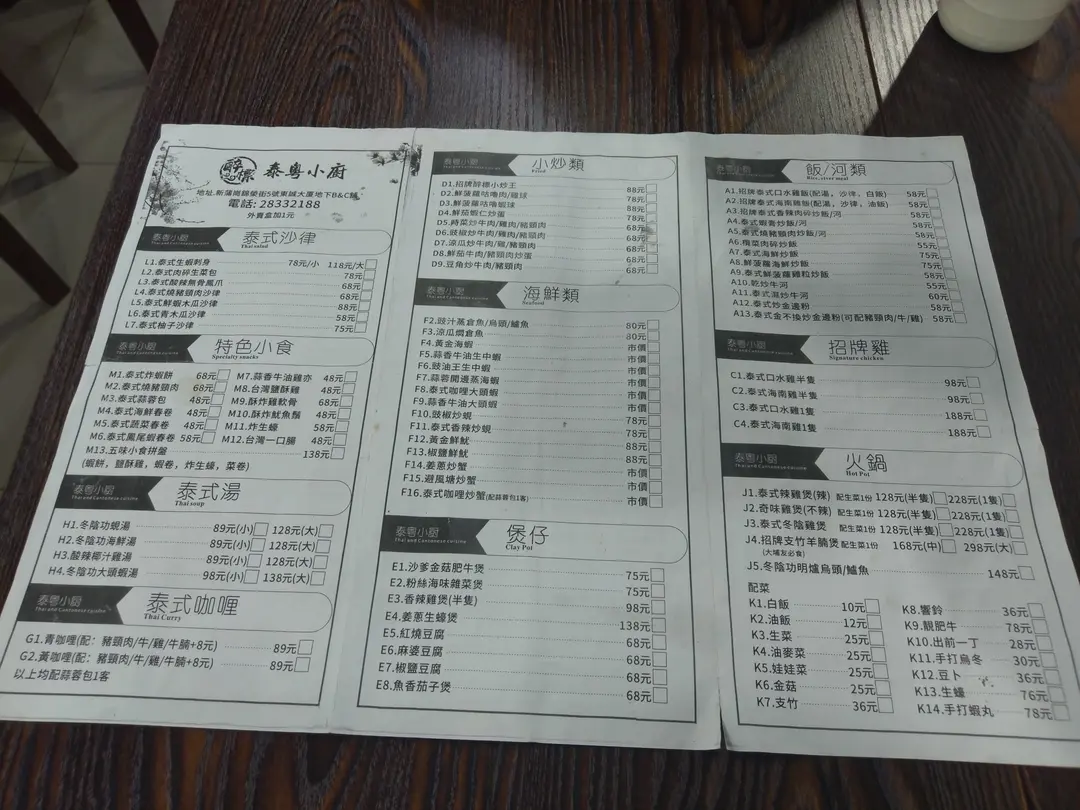 醉櫟
泰粵小廚
地址.新蒲崗錦榮街5號東誠大廈地下B&C舖
電話: 28332188
外賣盒加1元
泰粵小廚
Thai and Cantonese cuisine
泰式沙律
Thai salad
L1.泰式生蝦刺身 78元/小 118元/大
L2.泰式肉碎生菜包 78元
L3.泰式酸辣無骨鳳爪 68元
L4.泰式燒豬頸肉沙律 68元
L5.泰式鮮蝦木瓜沙律 88元
L6.泰式青木瓜沙律 58元
L7.泰式柚子沙律 75元
泰粵小廚
Thai and Cantonese cuisine
特色小食
Specialty snacks
M1.泰式炸蝦餅 68元 M7.蒜香牛油雞亦 48元
M2.泰式燒豬頸肉 68元 M8.台灣鹽酥雞 48元
M3.泰式蒜蓉包 48元 M9.酥炸雞軟骨 68元
M4.泰式海鮮春卷 48元 M10.酥炸魷魚鬚 48元
M5.泰式蔬菜春卷 48元 M11.炸生蠔 58元
M6.泰式鳳尾蝦春卷 58元 M12.台灣一口腸 48元
M13.五味小食拼盤 138元
(蝦餅，鹽酥雞，蝦卷，炸生蠔，菜卷)
泰粵小廚
Thai and Cantonese cuisine
泰式湯
Thai soup
H1.冬陰功蜆湯 89元(小) 128元(大)
H2.冬陰功海鮮湯 89元(小) 128元(大)
H3.酸辣椰汁雞湯 89元(小) 128元(大)
H4.冬陰功大頭蝦湯 98元(小) 138元(大)
泰粵小廚
Thai and Cantonese cuisine
泰式咖喱
Thai Curry
G1.青咖哩(配：豬頸肉/牛/雞/牛腩+8元) 89元
G2.黃咖哩(配：豬頸肉/牛/雞/牛腩+8元) 89元
以上均配蒜蓉包1客
泰粵小廚
Thai and Cantonese cuisine
小炒類
Fried
D1.招牌醉櫟小炒王 88元
D2.鮮菠蘿咕嚕肉/雞球 78元
D3.鮮菠蘿咕嚕蝦球 88元
D4.鮮茄蝦仁炒蛋 78元
D5.時菜炒牛肉/雞肉/豬頸肉 68元
D6.豉椒炒牛肉/雞肉/豬頸肉 68元
D7.涼瓜炒牛肉/雞/豬頸肉 68元
D8.鮮茄牛肉/豬頸肉炒蛋 68元
D9.豆角炒牛肉/豬頸肉 68元
泰粵小廚
Thai and Cantonese cuisine
海鮮類
Seafood
F2.豉汁蒸倉魚/烏頭/鱸魚 80元
F3.涼瓜燜倉魚 80元
F4.黃金海蝦 市價
F5.蒜香牛油生中蝦 市價
F6.豉油王生中蝦 市價
F7.蒜蓉開邊蒸海蝦 市價
F8.泰式咖哩大頭蝦 市價
F9.蒜香牛油大頭蝦 市價
F10.豉椒炒蜆 78元
F11.泰式香辣炒蜆 78元
F12.黃金鮮魷 88元
F13.椒鹽鮮魷 88元
F14.姜蔥炒蟹 市價
F15.避風塘炒蟹 市價
F16.泰式咖哩炒蟹(配蒜蓉包1客) 市價
泰粵小廚
Thai and Cantonese cuisine
煲仔
Clay Pot
E1.沙爹金菇肥牛煲 75元
E2.粉絲海味雜菜煲 75元
E3.香辣雞煲(半隻) 98元
E4.姜蔥生蠔煲 138元
E5.紅燒豆腐 68元
E6.麻婆豆腐 68元
E7.椒鹽豆腐 68元
E8.魚香茄子煲 68元
泰粵小廚
飯/河類
Rice, river meal
A1.招牌泰式口水雞飯(配湯，沙律，白飯) 58元
A2.招牌泰式海南雞飯(配湯，沙律，油飯) 58元
A3.招牌泰式香辣肉碎炒飯/河 58元
A4.泰式蝦膏炒飯/河 58元
A5.泰式燒豬頸肉炒飯/河 58元
A6.欖菜肉碎炒飯 55元
A7.泰式海鮮炒飯 75元
A8.鮮菠蘿海鮮炒飯 75元
A9.泰式鮮菠蘿雞粒炒飯 58元
A10.乾炒牛河 55元
A11.泰式濕炒牛河 60元
A12.泰式炒金邊粉 58元
A13.泰式金不換炒金邊粉(可配豬頸肉/牛/雞) 58元
泰粵小廚
Thai and Cantonese cuisine
招牌雞
Signature chicken
C1.泰式口水雞半隻 98元
C2.泰式海南雞半隻 98元
C3.泰式口水雞1隻 188元
C4.泰式海南雞1隻 188元
泰粵小廚
Thai and Cantonese cuisine
火鍋
Hot Pot
J1.泰式辣雞煲(辣) 配生菜1份 128元(半隻) 228元(1隻)
J2.奇味雞煲(不辣) 配生菜1份 128元(半隻) 228元(1隻)
J3.泰式冬陰雞煲 配生菜1份 128元(半隻) 228元(1隻)
J4.招牌支竹羊腩煲 配生菜1份 168元(中) 298元(大)
(大埔友必食)
J5.冬陰功明爐烏頭/鱸魚 148元
配菜
K1.白飯 10元 K8.響鈴 36元
K2.油飯 12元 K9.靚肥牛 78元
K3.生菜 25元 K10.出前一丁 28元
K4.油麥菜 25元 K11.手打烏冬 30元
K5.娃娃菜 25元 K12.豆卜 36元
K6.金菇 25元 K13.生蠔 76元
K7.支竹 36元 K14.手打蝦丸 78元